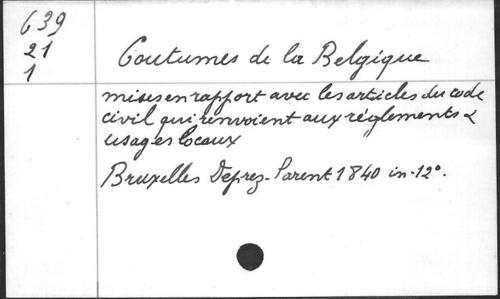 639
21
1
Coutumes de la Belgique
mises en rapport avec les articles du code
civil qui renvoient aux règlements &
usages locaux
Bruxelles Deprez-Parent 1840 in-12°.